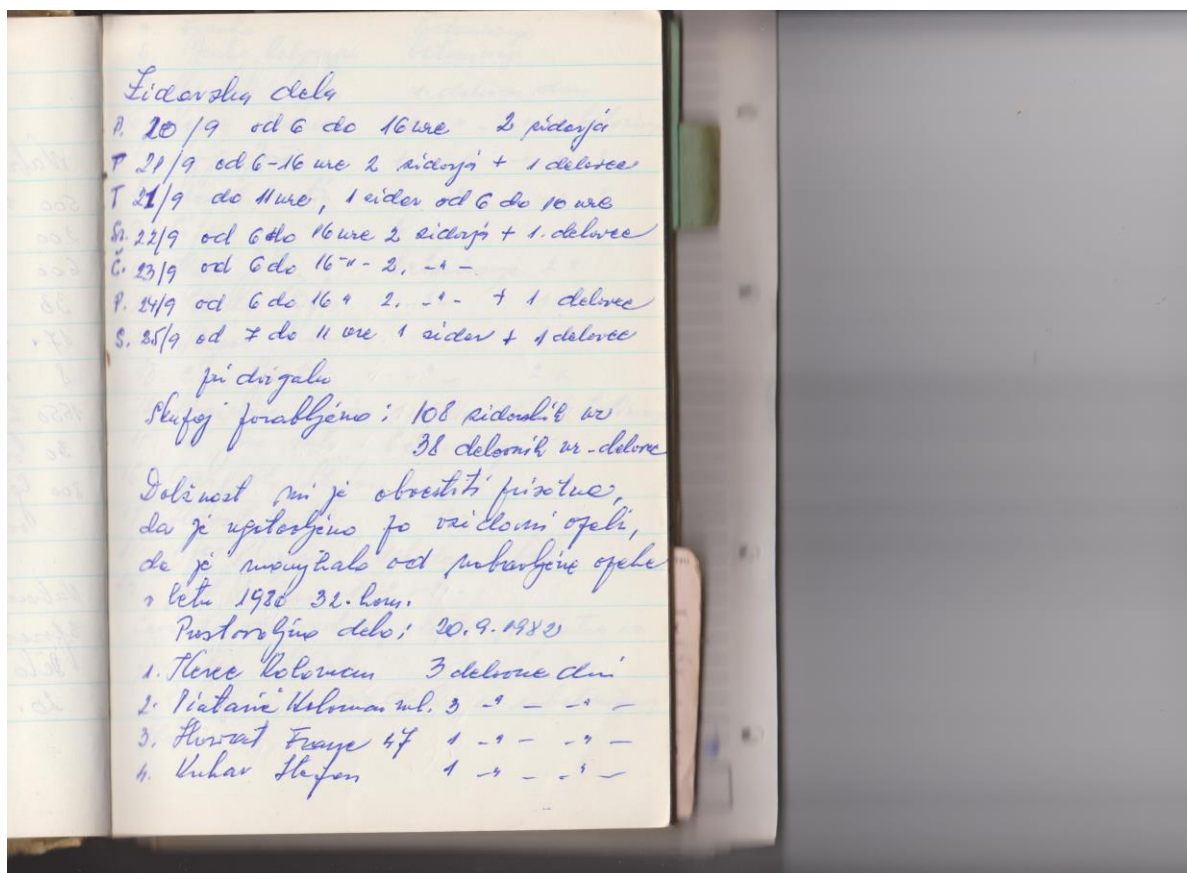 Zidarska dela
P. 20/9 od 6 do 16 ure 2 zidarja
T 21/9 od 6-16 ure 2 zidarja + 1 delavec
T 21/9 do 11 ure, 1 zidar od 6 do 10 ure
Sr. 22/9 od 6 do 16 ure 2 zidarja + 1. delavec
Č. 23/9 od 6 do 16 -"- 2. -"-
P. 24/9 od 6 do 16 " 2. -"- + 1 delavec
S. 25/9 od 7 do 11 ure 1 zidar + 1 delavec
pri dvigalu
Skupaj porabljeno: 108 zidarskih ur
38 delovnih ur - delavec
Dolžnost mi je obvestiti prisotne,
da je ugotovljeno po vzidavni opeki,
da je manjkalo od nabavljene opeke
v letu 1980 32. kom.
Prostovoljno delo: 20.9.1982
1. Koloman 3 delovne dni
2. Koloman ml. 3 -"- -"-
3. Horvat Franc 47 1 -"- -"-
4. Kuhar Štefan 1 -"- -"-
500
200
600
38
17.
1650
30